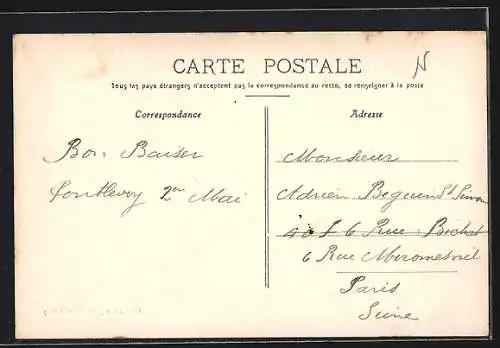 CARTE POSTALE
Tous les pays étrangers n'acceptent pas la correspondance au recto, se renseigner à la poste
Correspondance
Bon Baiser
Pontlevoy 2 Mai
Adresse
Monsieur
Adrien Beguin St Simon
6 Rue Bichat
6 Rue Miromesnil
Paris
Seine